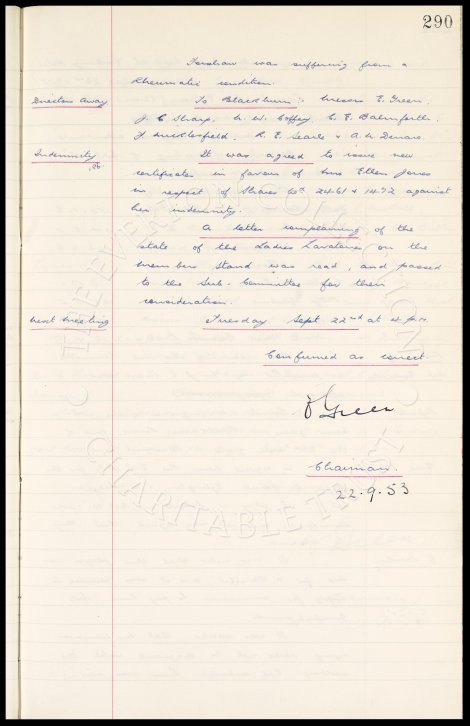 290
Forshaw was suffering from a
Rheumatic condition.
Directors Away
To Blackburn:- Messrs E. Green,
J. C. Sharp, N. W. Coffey, C. E. Balmforth,
F. Micklesfield, R. E. Searle & A. W. Denaro.
Indemnity
It was agreed to issue new
certificates in favour of Mrs Ellen Jones
in respect of Shares Nos 2461 & 1472 against
her indemnity.
A letter complaining of the
state of the Ladies Lavatories on the
Members Stand was read, and passed
to the Sub-Committee for their
consideration.
Next Meeting
Tuesday Sept 22nd at 4 p.m.
Confirmed as correct.
E Green
Chairman.
22.9.53
THE EVERTON COLLECTION
CHARITABLE TRUST